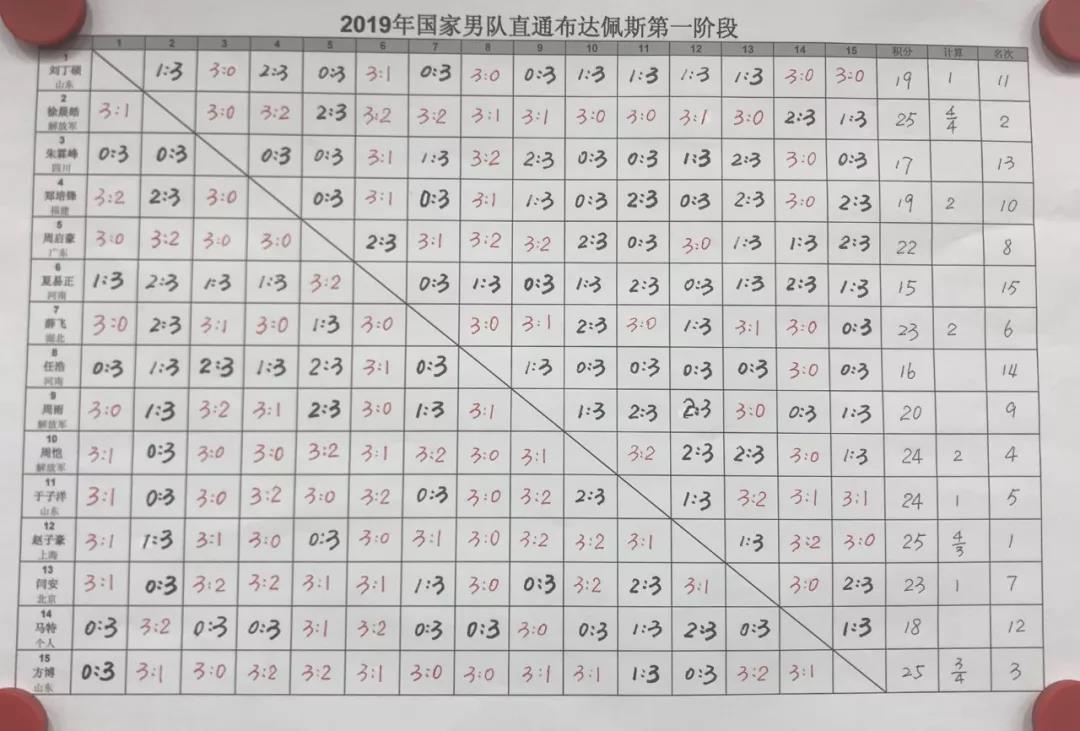 2019年国家男队直通布达佩斯第一阶段
1 2 3 4 5 6 7 8 9 10 11 12 13 14 15 积分 计算 名次
1
刘丁硕 1:3 3:0 2:3 0:3 3:1 0:3 3:0 0:3 1:3 1:3 1:3 1:3 3:0 3:0 19 1 11
山东
2
徐晨皓 3:1 3:0 3:2 2:3 3:2 3:2 3:1 3:1 3:0 3:0 3:1 3:0 2:3 1:3 25 4/4 2
解放军
3
朱霖峰 0:3 0:3 0:3 0:3 3:1 1:3 3:2 2:3 0:3 0:3 1:3 2:3 3:0 0:3 17 13
四川
4
郑培锋 3:2 2:3 3:0 0:3 3:1 0:3 3:1 1:3 0:3 2:3 0:3 2:3 3:0 2:3 19 2 10
福建
5
周启豪 3:0 3:2 3:0 3:0 2:3 3:1 3:2 3:2 2:3 0:3 3:0 1:3 1:3 2:3 22 8
广东
6
夏易正 1:3 2:3 1:3 1:3 3:2 0:3 1:3 0:3 1:3 2:3 0:3 1:3 2:3 1:3 15 15
河南
7
薛飞 3:0 2:3 3:1 3:0 1:3 3:0 3:0 3:1 2:3 3:0 1:3 3:1 3:0 0:3 23 2 6
湖北
8
任浩 0:3 1:3 2:3 1:3 2:3 3:1 0:3 1:3 0:3 0:3 0:3 0:3 3:0 0:3 16 14
河南
9
周雨 3:0 1:3 3:2 3:1 2:3 3:0 1:3 3:1 1:3 2:3 2:3 3:0 0:3 1:3 20 9
解放军
10
周恺 3:1 0:3 3:0 3:0 3:2 3:1 3:2 3:0 3:1 3:2 2:3 2:3 3:0 1:3 24 2 4
解放军
11
于子洋 3:1 0:3 3:0 3:2 3:0 3:2 0:3 3:0 3:2 2:3 1:3 3:2 3:1 3:1 24 1 5
山东
12
赵子豪 3:1 1:3 3:1 3:0 0:3 3:0 3:1 3:0 3:2 3:2 3:1 1:3 3:2 3:0 25 4/3 1
上海
13
闫安 3:1 0:3 3:2 3:2 3:1 3:1 1:3 3:0 0:3 3:2 2:3 3:1 3:0 2:3 23 1 7
北京
14
马特 0:3 3:2 0:3 0:3 3:1 3:2 0:3 0:3 3:0 0:3 1:3 2:3 0:3 1:3 18 12
个人
15
方博 0:3 3:1 3:0 3:2 3:2 3:1 3:0 3:0 3:1 3:1 1:3 0:3 3:2 3:1 25 3/4 3
山东